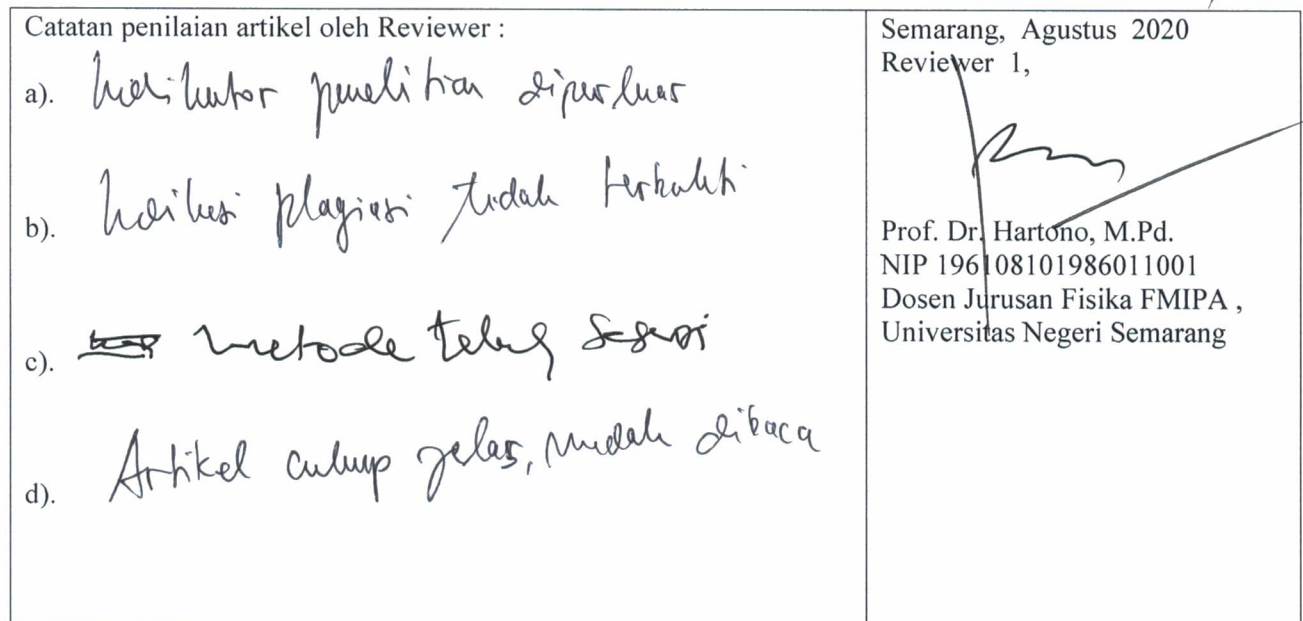 Catatan penilaian artikel oleh Reviewer :
a). Indikator penelitian diperluas
b). Indikasi plagiasi tidak terbukti
c). metode telah sesuai
d). Artikel cukup jelas, mudah dibaca
Semarang, Agustus 2020
Reviewer 1,
Prof. Dr. Hartono, M.Pd.
NIP 196108101986011001
Dosen Jurusan Fisika FMIPA ,
Universitas Negeri Semarang